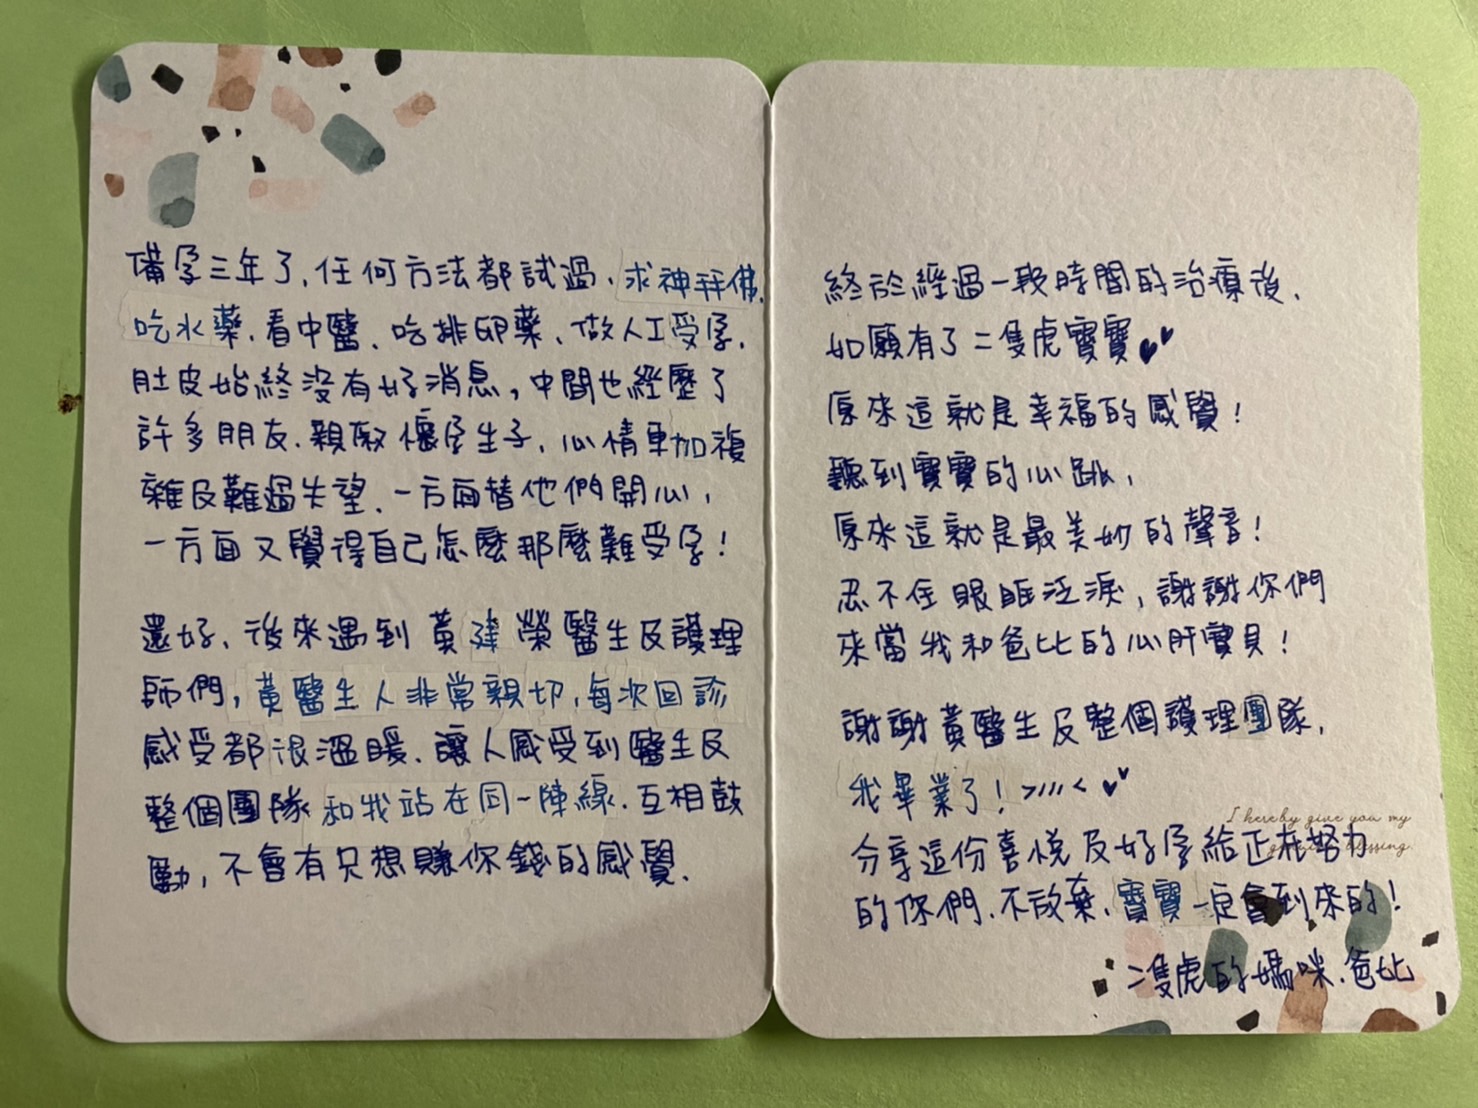 備孕三年了,任何方法都試過、求神拜佛、
吃水藥、看中醫、吃排卵藥、做人工受孕,
肚皮始終沒有好消息,中間也經歷了
許多朋友、親戚懷孕生子,心情更加複
雜及難過失望、一方面替他們開心,
一方面又覺得自己怎麼那麼難受孕!
還好,後來遇到黃建榮醫生及護理
師們,黃醫生人非常親切,每次回診
感受都很溫暖、讓人感受到醫生及
整個團隊和我站在同一陣線、互相鼓
勵,不會有只想賺你錢的感覺、
終於經過一段時間的治療後、
如願有了二隻虎寶寶
原來這就是幸福的感覺!
聽到寶寶的心跳,
原來這就是最美妙的聲音!
忍不住眼眶泛淚,謝謝你們
來當我和爸比的心肝寶貝!
謝謝黃醫生及整個護理團隊,
我畢業了! >///<
I hereby give you my
分享這份喜悅及好孕給正在努力
blessing.
的你們、不放棄、寶寶一定會到來的!
二隻虎的媽咪、爸比